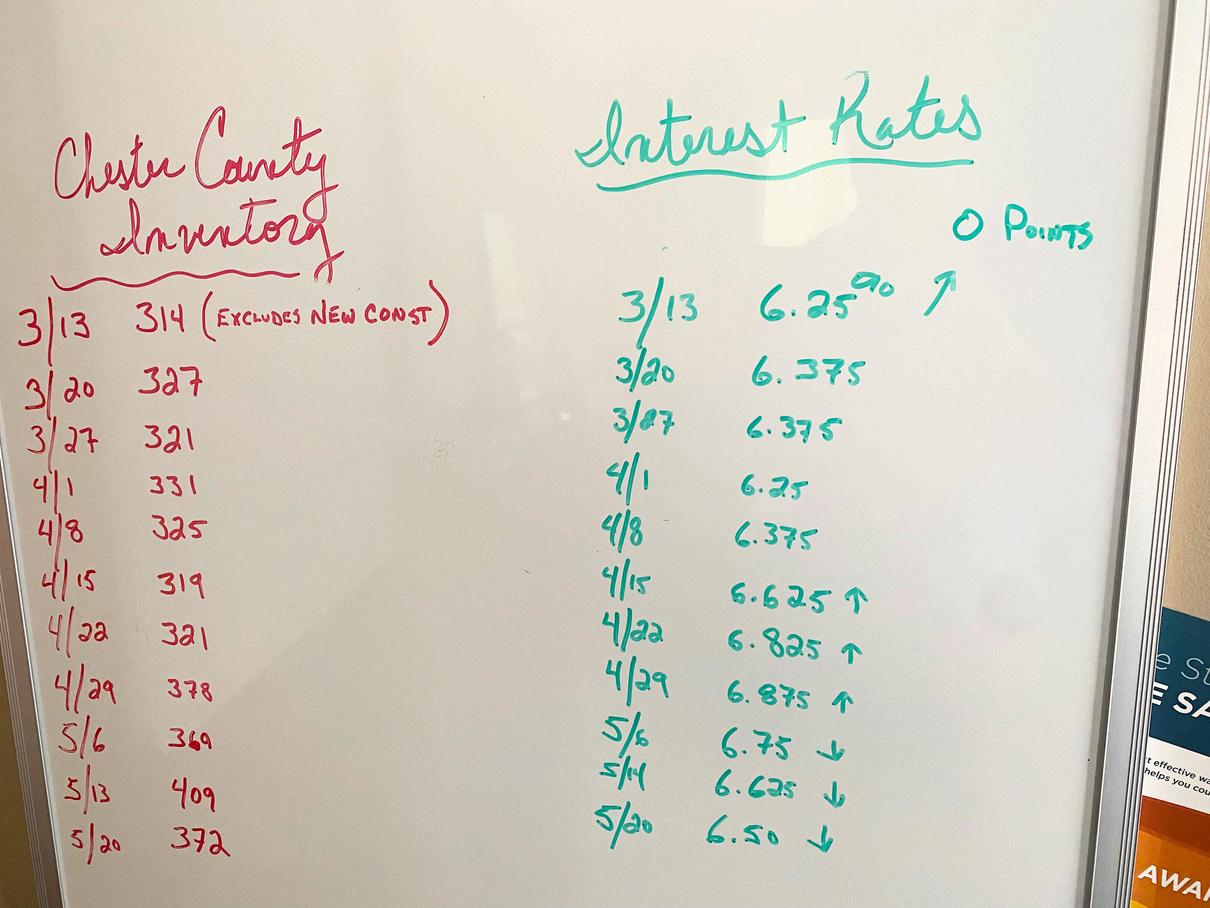 Chester County
Inventory
3/13 314 (EXCLUDES NEW CONST)
3/20 327
3/27 321
4/1 331
4/8 325
4/15 319
4/22 321
4/29 378
5/6 369
5/13 409
5/20 372
Interest Rates
0 POINTS
3/13 6.25% ↑
3/20 6.375
3/27 6.375
4/1 6.25
4/8 6.375
4/15 6.625 ↑
4/22 6.825 ↑
4/29 6.875 ↑
5/6 6.75 ↓
5/14 6.625 ↓
5/20 6.50 ↓
effective
helps you